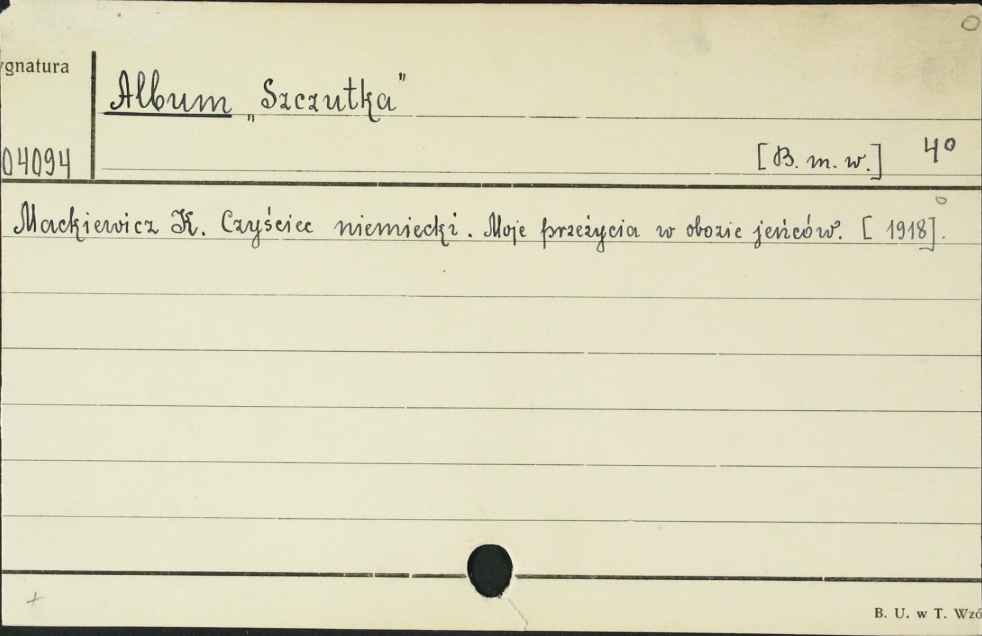 ygnatura
Album „Szczutka"
04094
[B. m. w.] 4°
Mackiewicz K. Czyściec niemiecki. Moje przeżycia w obozie jeńców. [1918].
B. U. w T. Wzó